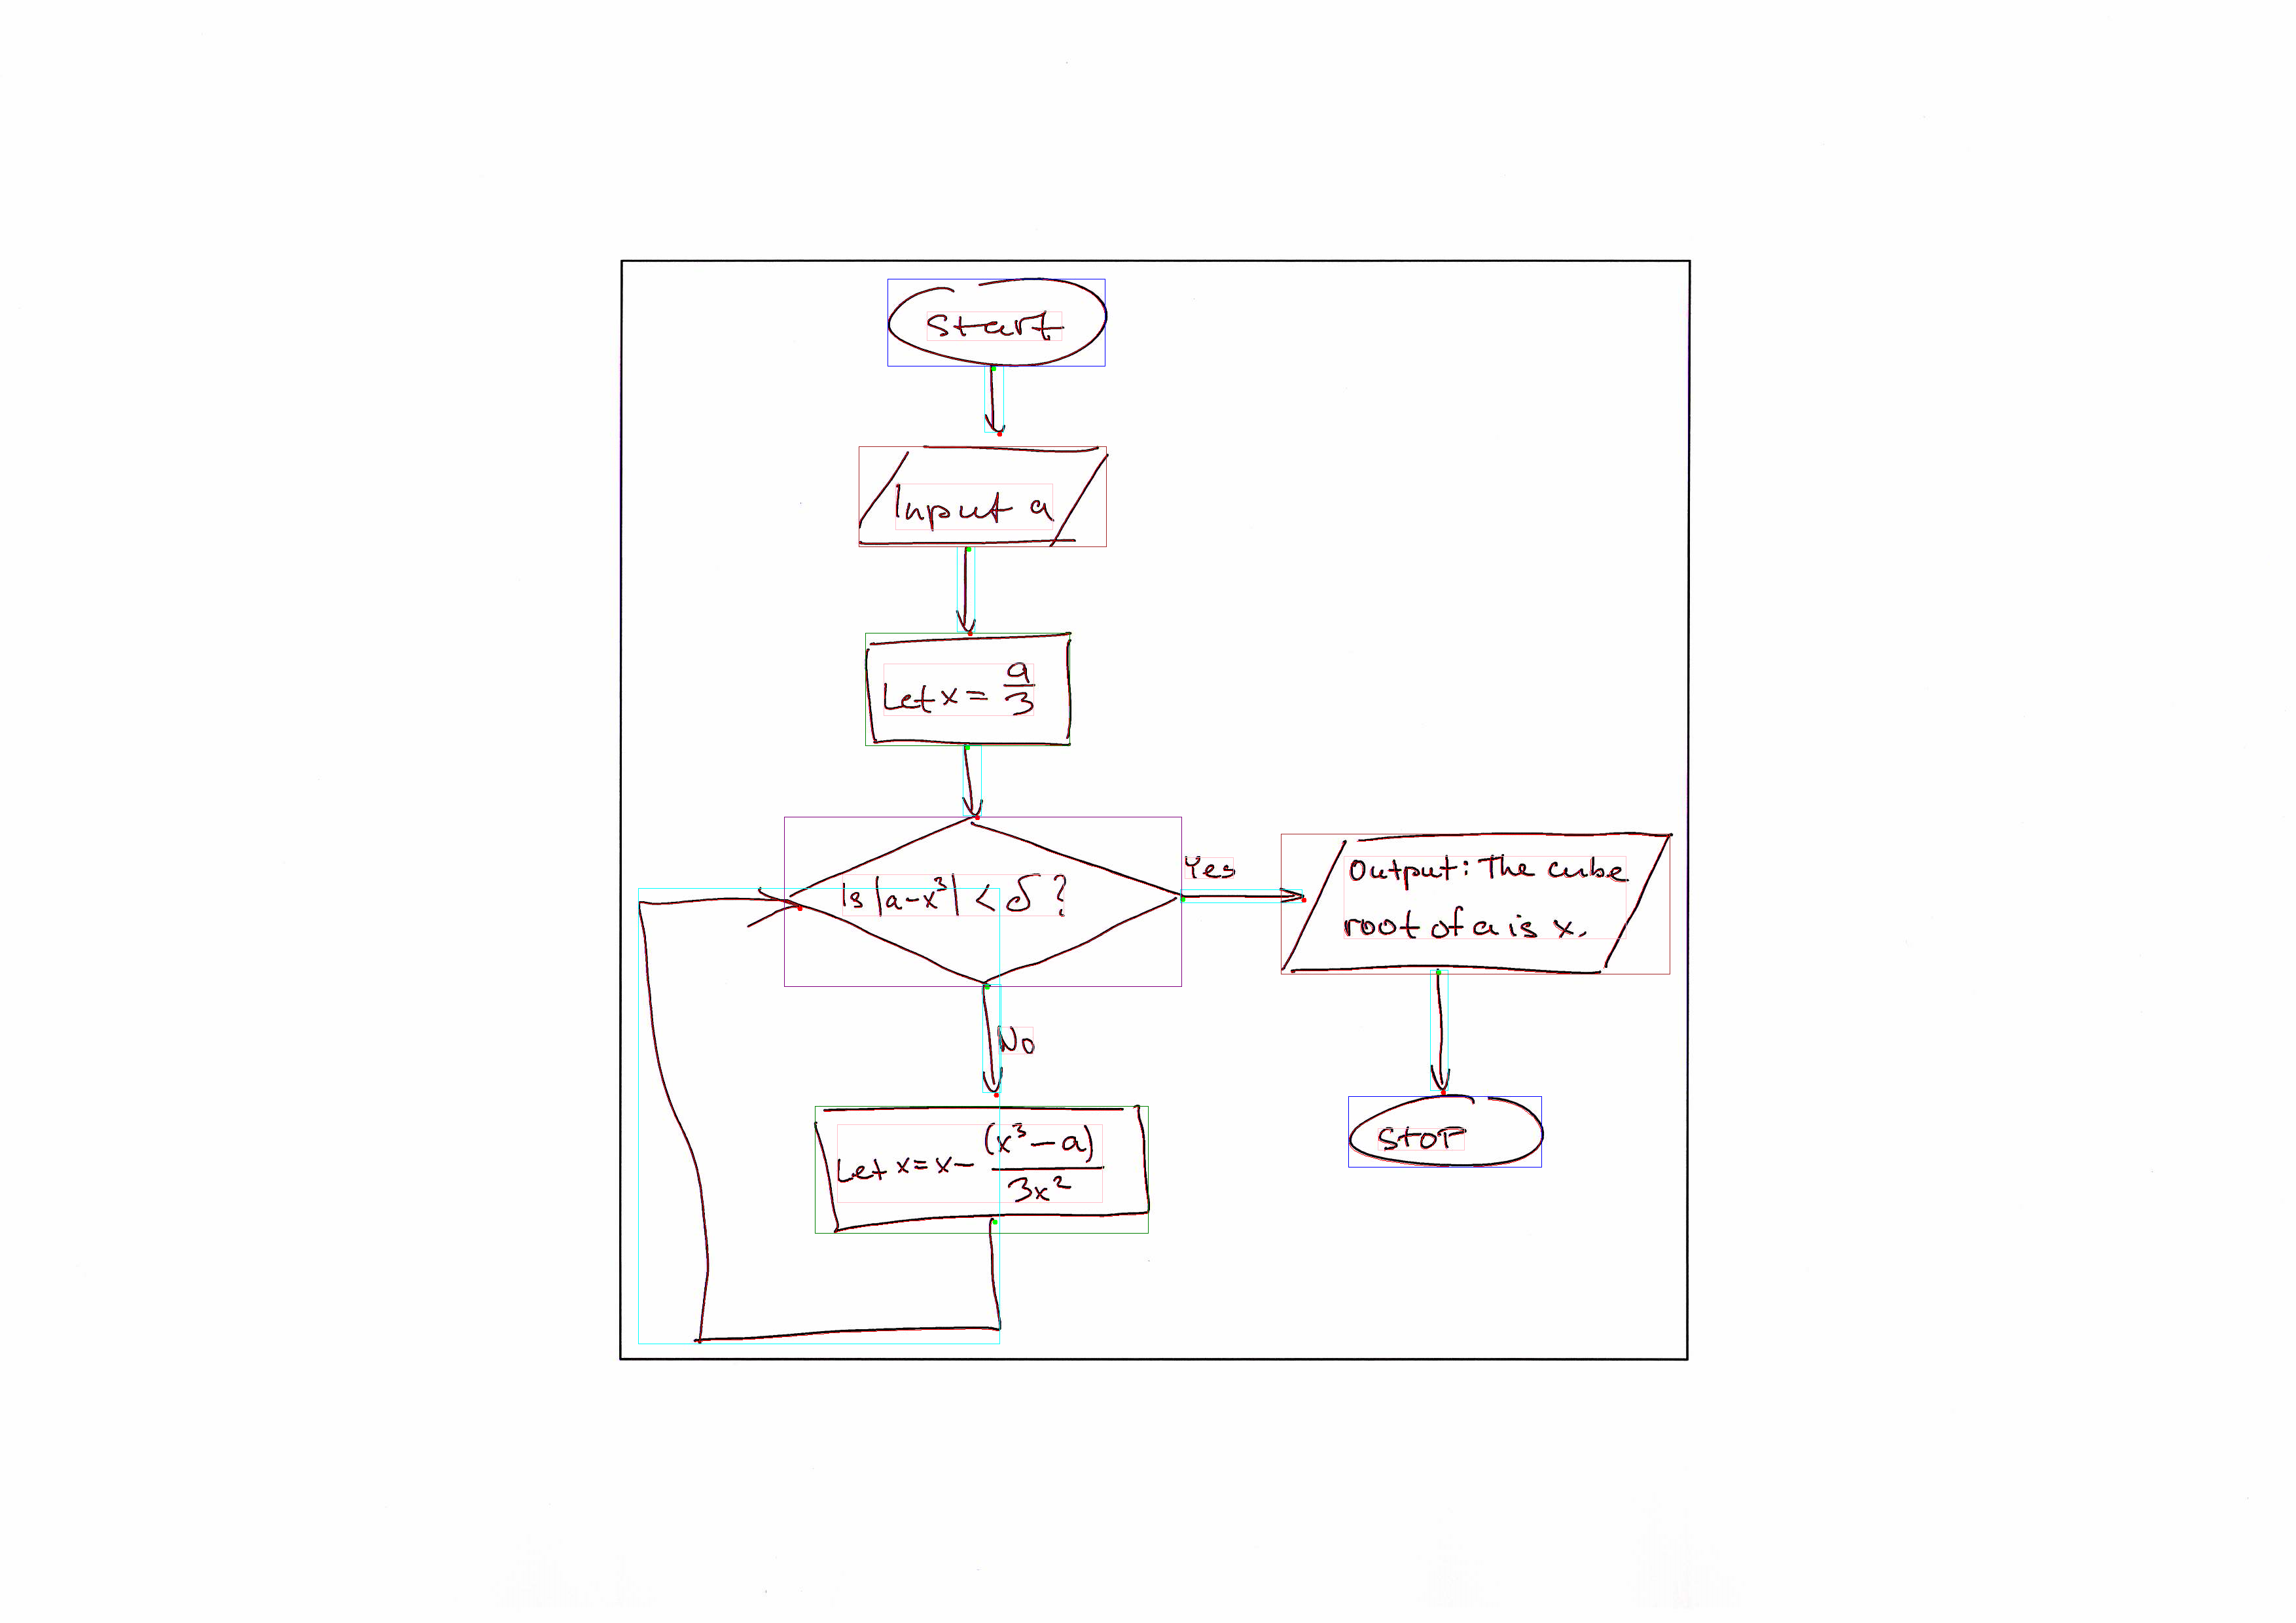 Start
Input a
Let x = a/3
Is |a-x³| < δ ?
Yes
Output: The cube
root of a is x.
No
Let x = x - (x³-a)/3x²
STOP